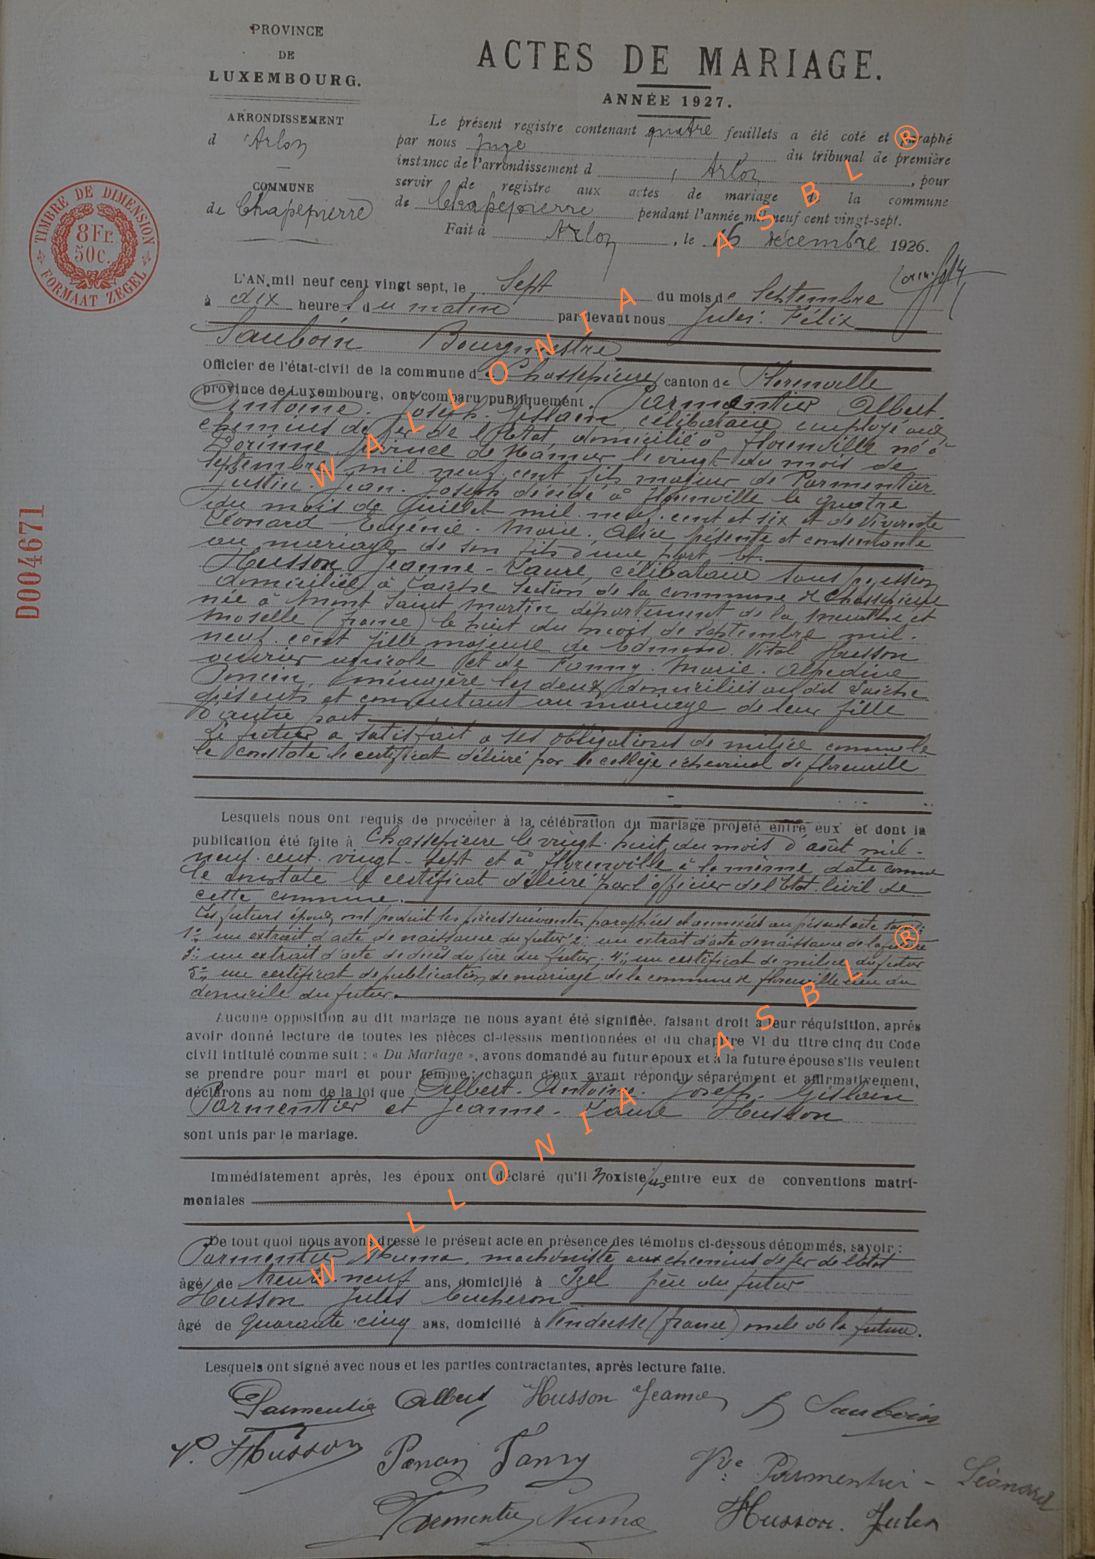 PROVINCE
DE
LUXEMBOURG.
ARRONDISSEMENT
d'Arlon
COMMUNE
de Chassepierre
TIMBRE DE DIMENSION
8 Fr.
50c.
FORMAAT ZEGEL
D004671
ACTES DE MARIAGE.
ANNÉE 1927.
Le présent registre contenant quatre feuillets a été coté et paraphé
par nous Juge du tribunal de première
instance de l'arrondissement d Arlon, pour
servir de registre aux actes de mariage de la commune
de Chassepierre pendant l'année mil neuf cent vingt-sept.
Fait à Arlon, le 16 décembre 1926.
L'AN mil neuf cent vingt sept, le Sept du mois de Septembre
à dix heures du matin par devant nous Jules Félix
Sauboin Bourgmestre
Officier de l'état-civil de la commune de Chassepierre, canton de Florenville
province de Luxembourg, ont comparu publiquement: Parmentier Albert-
Antoine-Joseph-Gislain, célibataire employé aux
chemins de fer de l'Etat, domicilié à Florenville né à
Dorinne province de Namur le vingt du mois de
Septembre mil neuf cent fils majeur de Parmentier
Justin-Jean-Joseph décédé à Florenville le quatre
du mois de Juillet mil neuf cent et six et de vivante
Léonard Eugénie-Marie-Alice présente et consentante
au mariage de son fils d'une part et
Husson Jeanne-Laure, célibataire sans profession
domiciliée à Laiche section de la commune de Chassepierre
née à Mont Saint Martin département de la Meurthe et
Moselle (france) le huit du mois de septembre mil-
neuf cent fille majeure de Edmond Vital Husson
ouvrier agricole et de Fanny-Marie-
ménagère les deux domiciliés au dit Laiche
présents et consentant au mariage de leur fille
d'autre part
Le futur a satisfait à ses obligations de milice comme le
le constate le certificat délivré par le collège échevinal de florenville
Lesquels nous ont requis de procéder à la célébration du mariage projeté entre eux et dont la
publication été faite à Chassepierre le vingt-huit du mois d'août mil-
neuf cent vingt-sept et à Florenville à la même date comme
le constate le certificat délivré par l'officier de l'état-civil de
cette commune.
Les futurs époux ont produit les pièces suivantes paraphées et annexées au présent acte savoir:
1° un extrait d'acte de naissance du futur 2° un extrait d'acte de naissance de la future
3° un extrait d'acte de décès du père du futur; 4° un certificat de milice du futur
5° un certificat de publication de mariage de la commune de florenville lieu du
domicile du futur.
Aucune opposition au dit mariage ne nous ayant été signifiée, faisant droit à leur réquisition, après
avoir donné lecture de toutes les pièces ci-dessus mentionnées et du chapitre VI du titre cinq du Code
civil intitulé comme suit : « Du Mariage », avons demandé au futur époux et à la future épouse s'ils veulent
se prendre pour mari et pour femme; chacun d'eux ayant répondu séparément et affirmativement,
déclarons au nom de la loi que Albert-Antoine-Joseph-Gislain
Parmentier et Jeanne-Laure Husson
sont unis par le mariage.
Immédiatement après, les époux ont déclaré qu'il n'existe pas entre eux de conventions matri-
moniales
De tout quoi nous avons dressé le présent acte en présence des témoins ci-dessous dénommés, savoir :
Parmentier Numa, machiniste aux chemins de fer de l'état
âgé de trente neuf ans, domicilié à Izel frère du futur
Husson Jules bucheron
âgé de quarante-cinq ans, domicilié à Vendresse (france) oncle de la future.
Lesquels ont signé avec nous et les parties contractantes, après lecture faite.
Parmentier Albert Husson Jeanne J Sauboin
V. Husson Fanny Vve Parmentier-Léonard
Parmentier Numa Husson. Jules
WALLONIA ASBL ®
WALLONIA ASBL ®